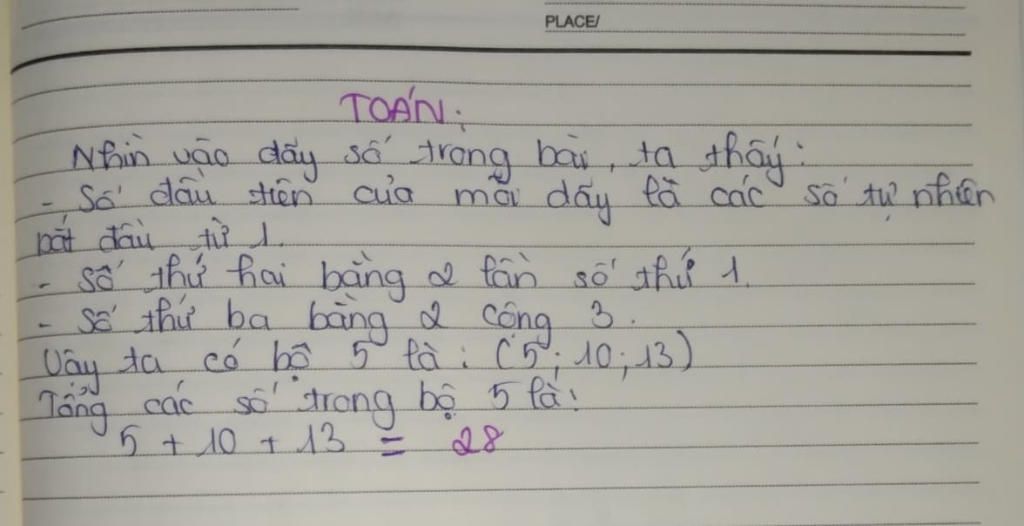 PLACE/
TOÁN:
Nhìn vào dãy số trong bài, ta thấy:
- Số đầu tiên của mỗi dãy là các số tự nhiên
bắt đầu từ 1.
- Số thứ hai bằng 2 lần số thứ 1.
- Số thứ ba bằng 2 cộng 3.
Vậy ta có bộ 5 là: (5; 10; 13)
Tổng các số trong bộ 5 là:
5 + 10 + 13 = 28